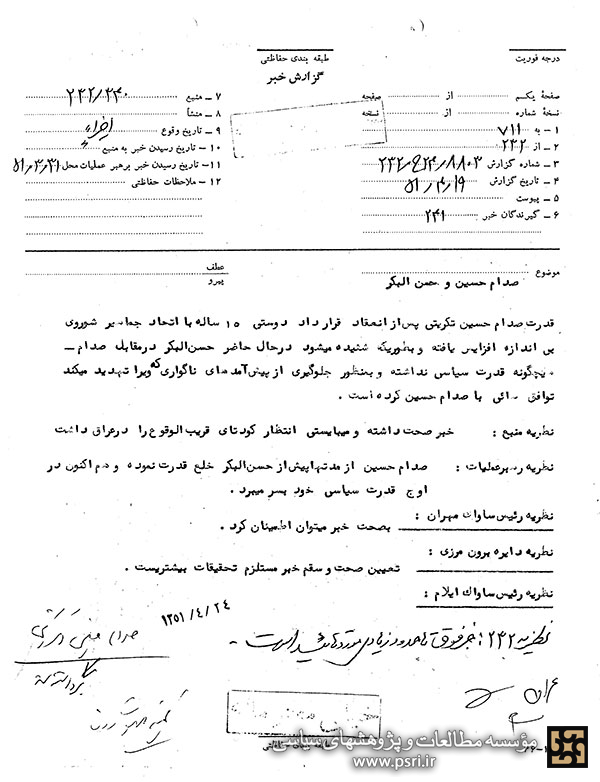 درجه فوریت
طبقه بندی حفاظتی
گزارش خبر
صفحهٔ یکم از صفحه
نسخهٔ شماره از نسخه
۱ ـ به ۷۱۱
۲ ـ از ۲۳۲
۳ ـ شماره گزارش
۴ ـ تاریخ گزارش ۵۱/۴/۱۹
۵ ـ پیوست
۶ ـ گیرندگان خبر ۲۴۱
۷ ـ منبع
۸ ـ منشأ
۹ ـ تاریخ وقوع اخیراً
۱۰ ـ تاریخ رسیدن خبر به منبع
۱۱ ـ تاریخ رسیدن خبر برهبر عملیات محل ۵۱/۳/۳۱
۱۲ ـ ملاحظات حفاظتی
موضوع صدام حسین و حسن البکر
عطف
پیرو
قدرت صدام حسین تکریتی پس از انعقاد قرارداد دوستی ۱۵ ساله با اتحاد جماهیر شوروی
بی اندازه افزایش یافته و بطوریکه شنیده میشود درحال حاضر حسن البکر درمقابل صدام ـ
هیچگونه قدرت سیاسی نداشته و بمنظور جلوگیری از پیش آمدهای ناگواری که ویرا تهدید میکند
توافق هائی با صدام حسین کرده است .
نظریه منبع : خبر صحت داشته و میبایستی انتظار کودتای قریب الوقوع را درعراق داشت
نظریه رهبرعملیات : صدام حسین از مدتها پیش از حسن البکر خلع قدرت نموده و هم اکنون در
اوج قدرت سیاسی خود بسر میبرد .
نظریه رئیس ساواك مهران :
بصحت خبر میتوان اطمینان کرد .
نظریه دایره برون مرزی :
تعیین صحت و سقم خبر مستلزم تحقیقات بیشتریست .
نظریه رئیس ساواك ایلام :
۱۳۵۱/۴/۲۴
نظریه ۲۳۲ : خبر فوق تا حدود زیادی
است .
طبقه بندی حفاظتی
مؤسسه مطالعات و پژوهشهای سیاسی
www.psri.ir